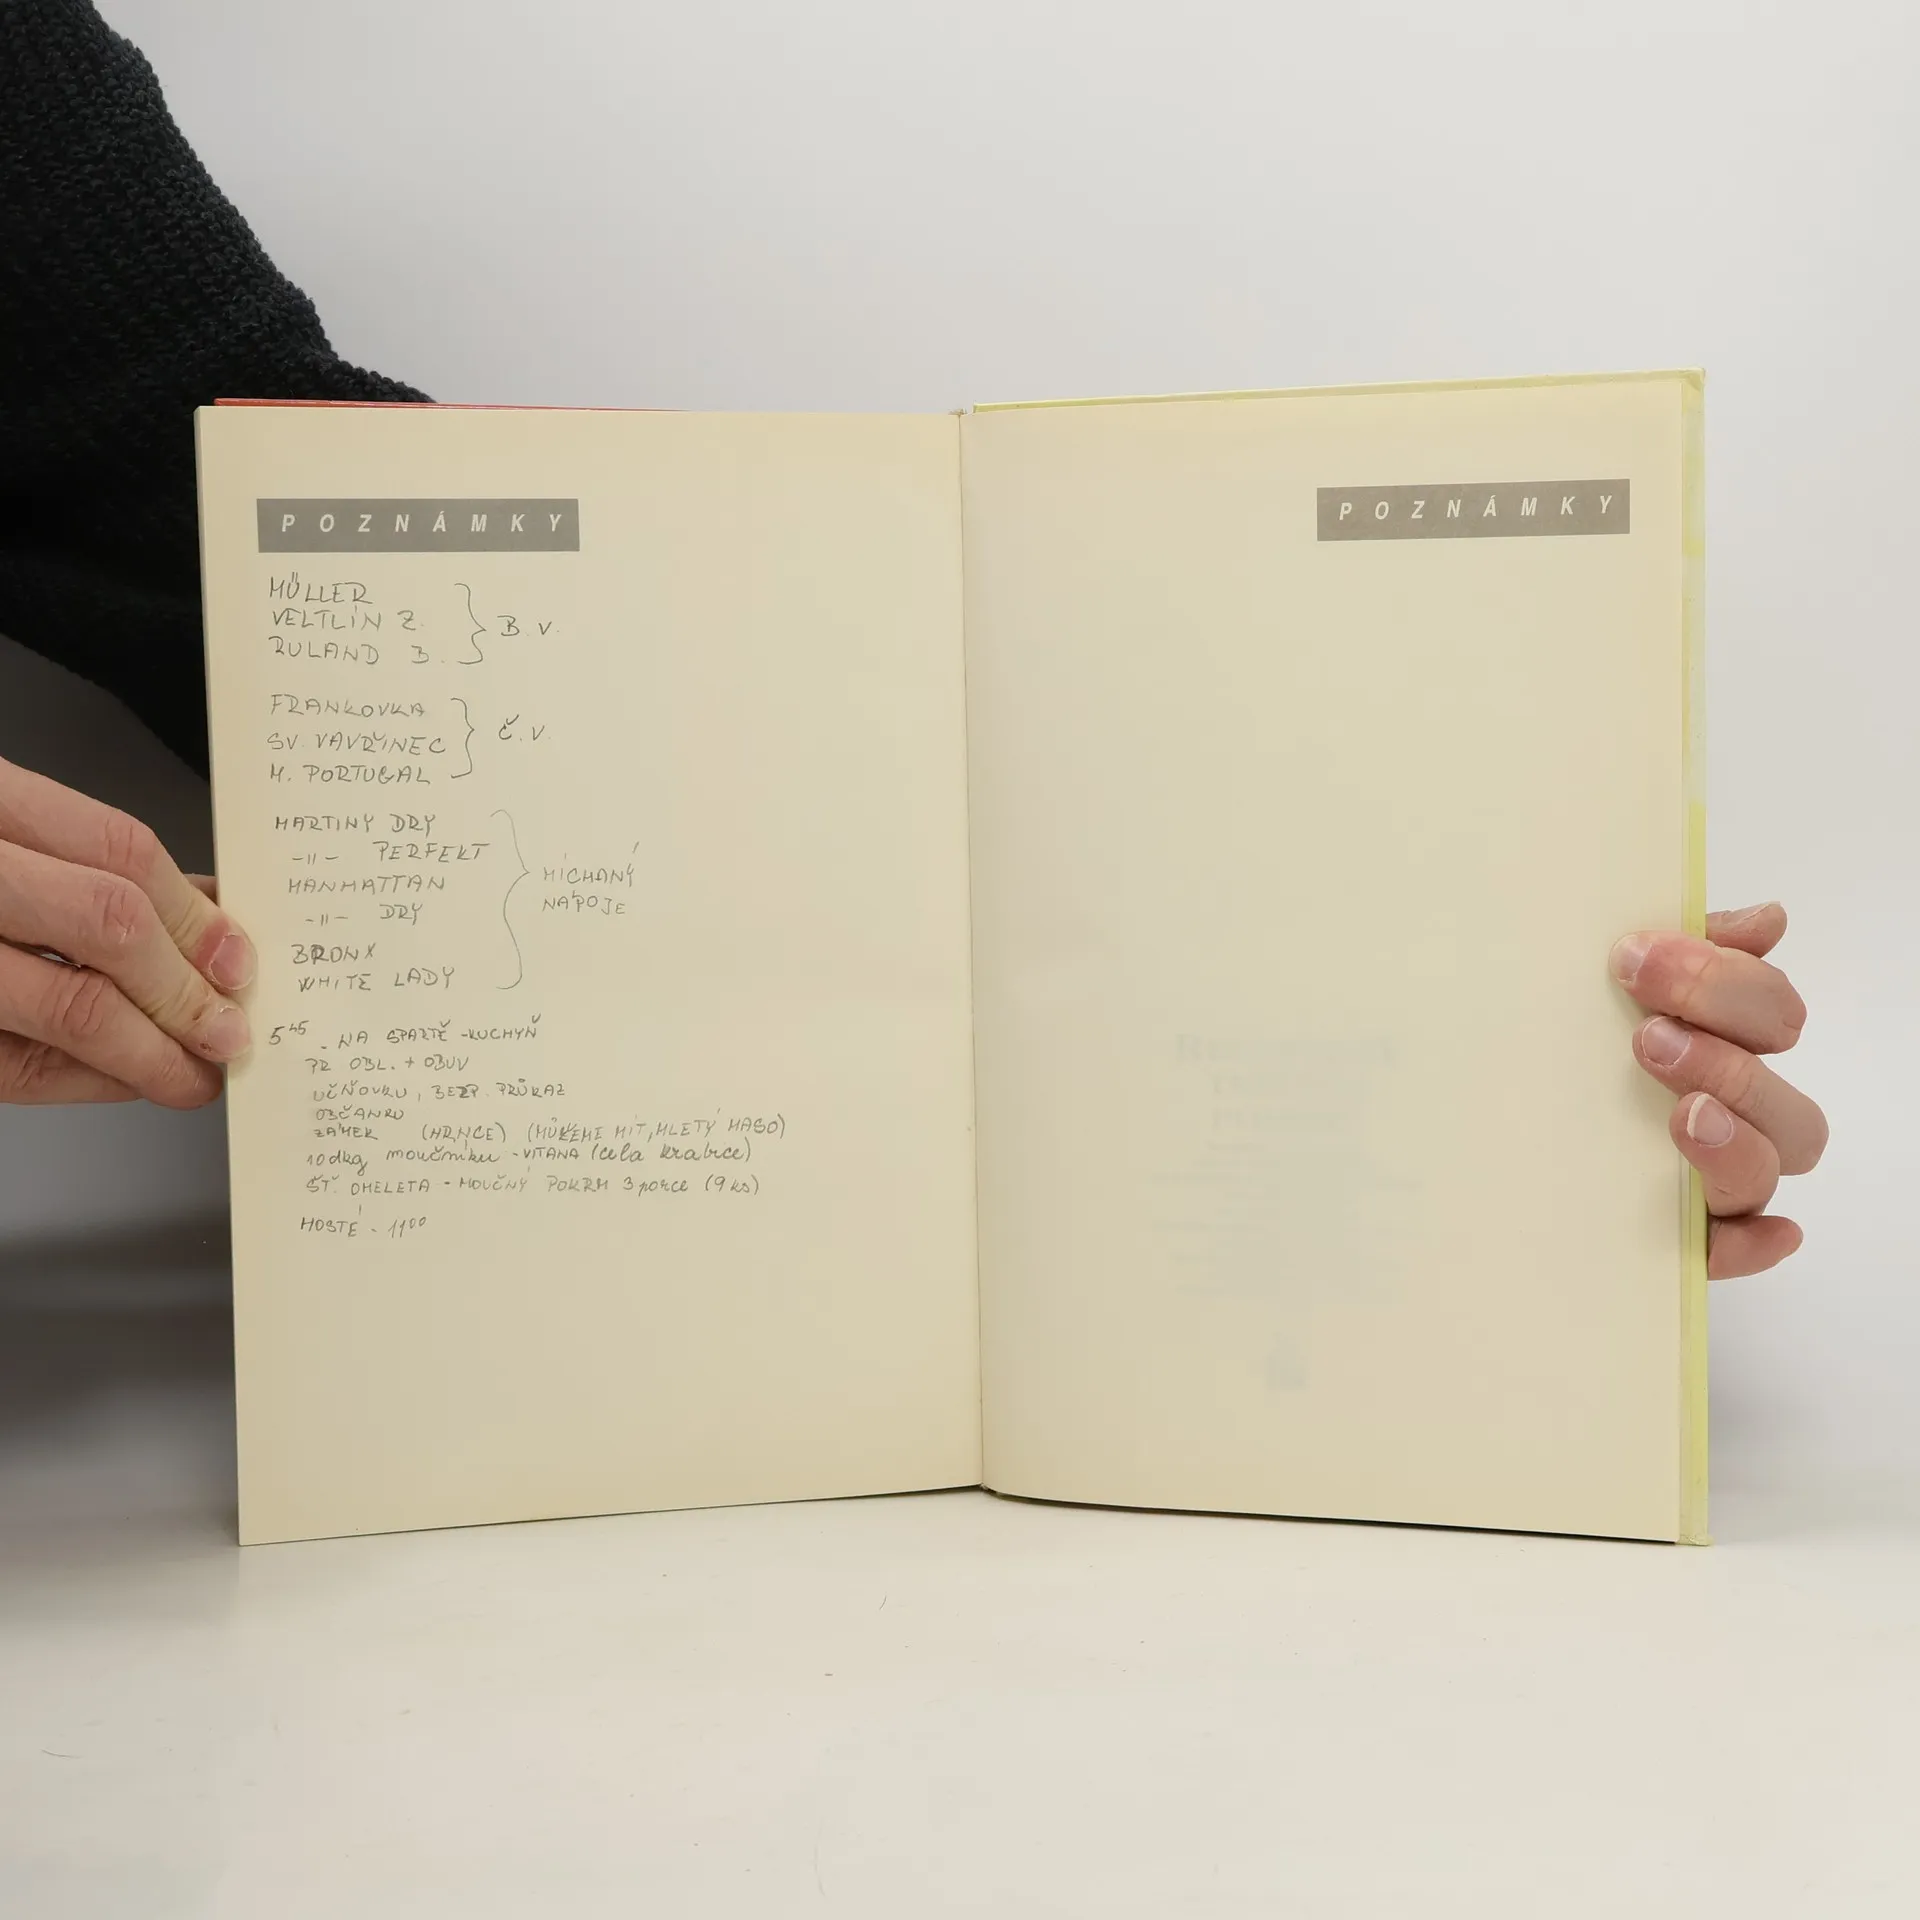 POZNÁMKY
MÜLLER
VELTLÍN Z.
RULAND B.
B.V.
FRANKOVKA
SV. VAVŘINEC
M. PORTUGAL
Č.V.
MARTINY DRY
-"- PERFEKT
MANHATTAN
-"- DRY
BRONX
WHITE LADY
MÍCHANÝ
NÁPOJE
5 45 - NA SPARTĚ - KUCHYŇ
PR OBL. + OBUV
UČŇOVKU, BEZP. PRŮKAZ
OBČANKU
ZÁMEK (HRNCE) (MŮŽEME MÍT, MLETÝ MASO)
10 dkg moučníku - VITANA (celá krabice)
ŠT. OMELETA - MOUČNÝ POKRM 3 porce (9 ks)
HOSTÉ - 11 00
POZNÁMKY